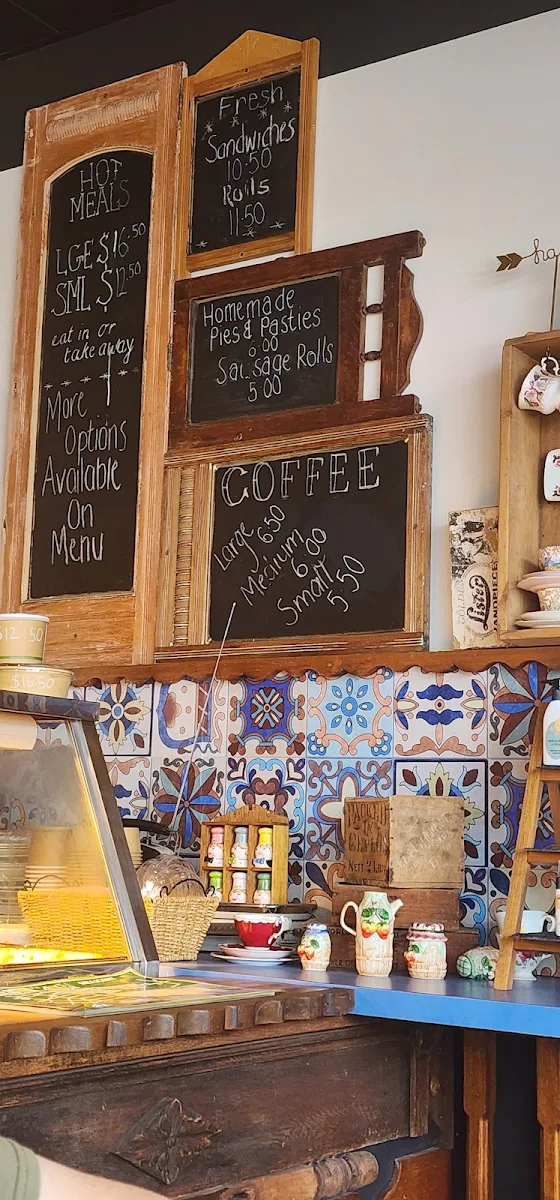 HOT
MEALS
LGE $16.50
SML $12.50
eat in or
take away
More
Options
Available
On
Menu
Fresh
Sandwiches
10.50
Rolls
11.50
Homemade
Pies & Pasties
Sausage Rolls
5.00
COFFEE
Large 6.50
Medium 6.00
Small 5.50
Lister
$12.50
$16.50